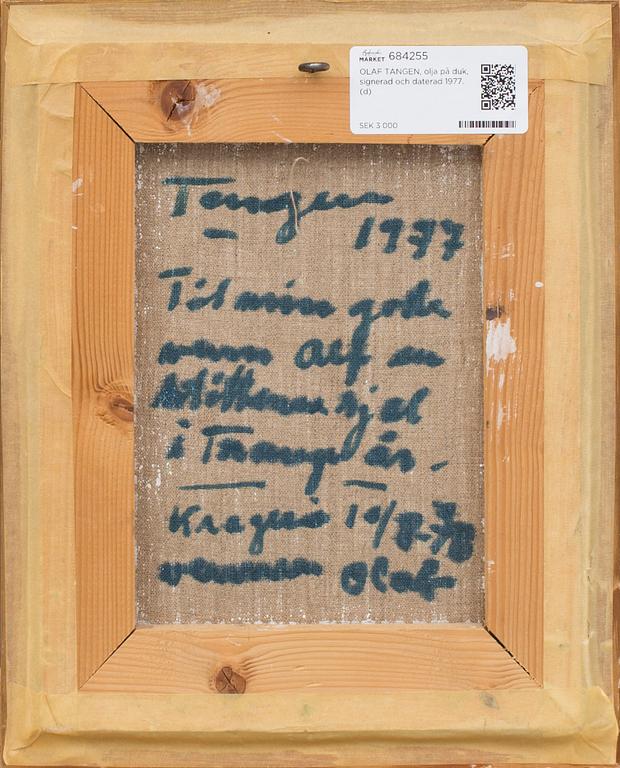 MARKET 684255
OLAF TANGEN, olja på duk,
signerad och daterad 1977.
(d)
SEK 3 000
Tangen
1977
Til min gode
venn Alf en
støttende sjel
i Trange år.
Kragerø 10/8-78
vennen Olaf